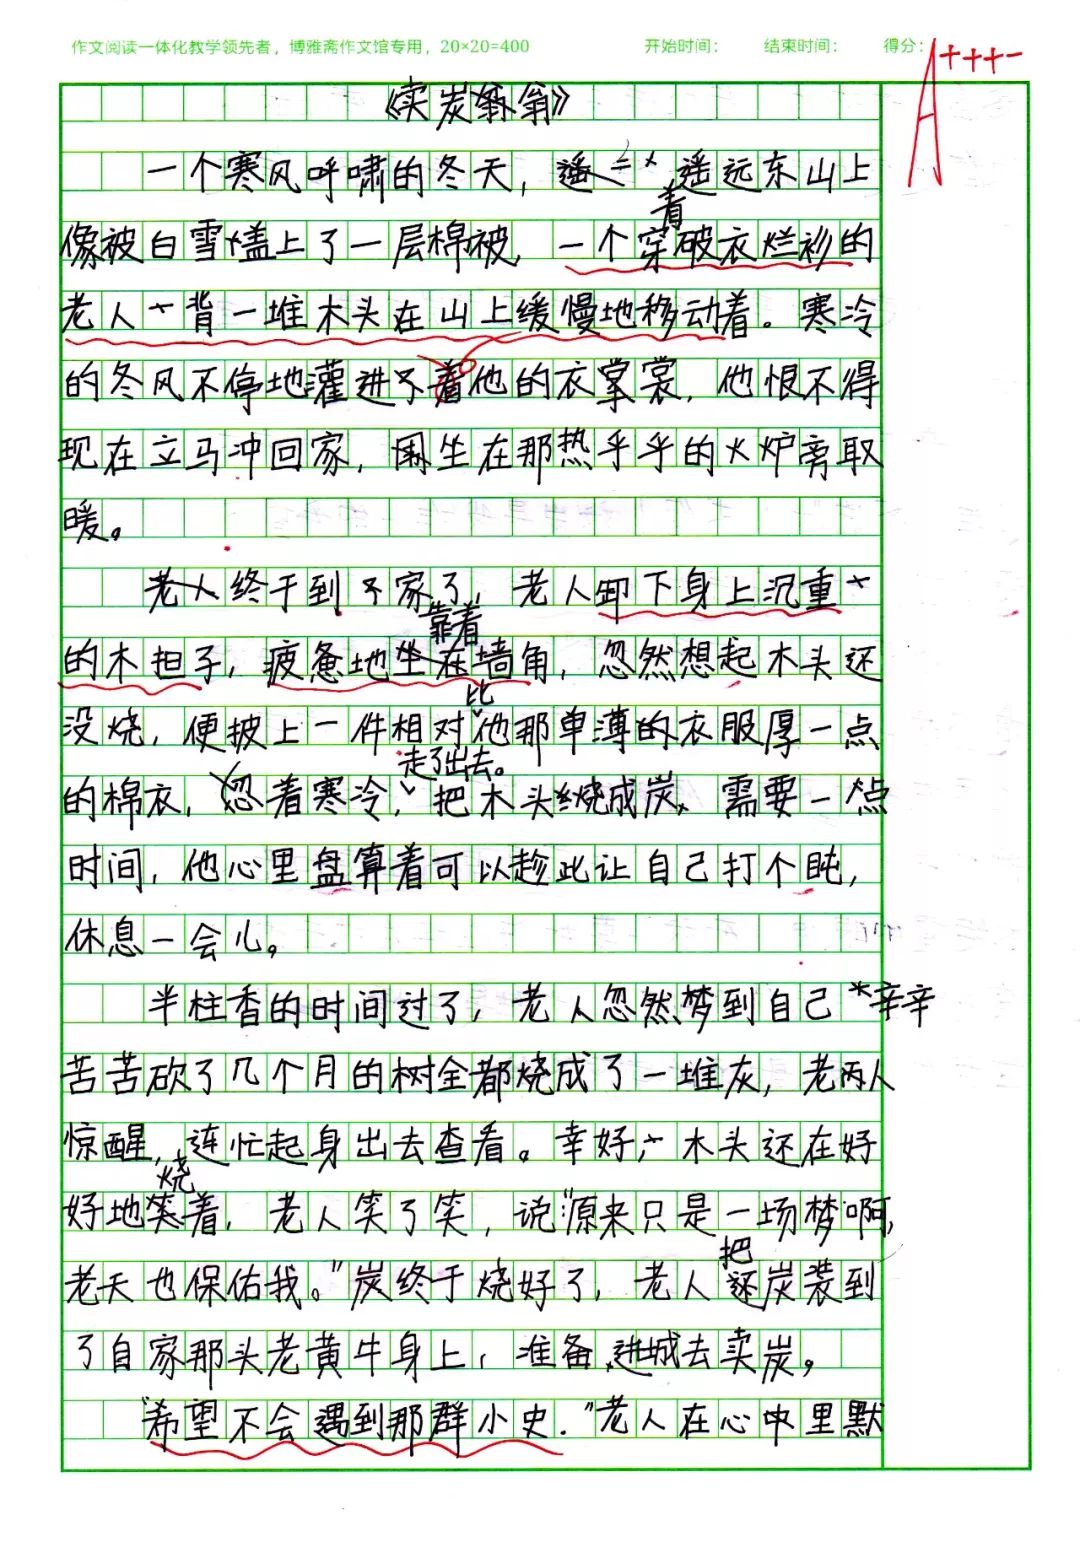 作文阅读一体化教学领先者，博雅斋作文馆专用，20×20=400 开始时间： 结束时间： 得分：
A+++-
《卖炭翁》
一个寒风呼啸的冬天，遥远东山上
像被白雪盖上了一层棉被，一个穿着破衣烂衫的
老人背一堆木头在山上缓慢地移动着。寒冷
的冬风不停地灌进他的衣裳，他恨不得
现在立马冲回家，坐在那热乎乎的火炉旁取
暖。
老人终于到家了，老人卸下身上沉重
的木担子，疲惫地靠着墙角，忽然想起木头还
没烧，便披上一件相对比他那单薄的衣服厚一点
的棉衣，忍着寒冷，走了出去。把木头烧成炭，需要一点
时间，他心里盘算着可以趁此让自己打个盹，
休息一会儿。
半柱香的时间过了，老人忽然梦到自己辛辛
苦苦砍了几个月的树全都烧成了一堆灰，老人
惊醒，连忙起身出去查看。幸好，木头还在好
好地烧着，老人笑了笑，说“原来只是一场梦啊，
老天也保佑我。”炭终于烧好了，老人把炭装到
了自家那头老黄牛身上，准备进城去卖炭。
“希望不会遇到那群小吏.”老人在心中里默